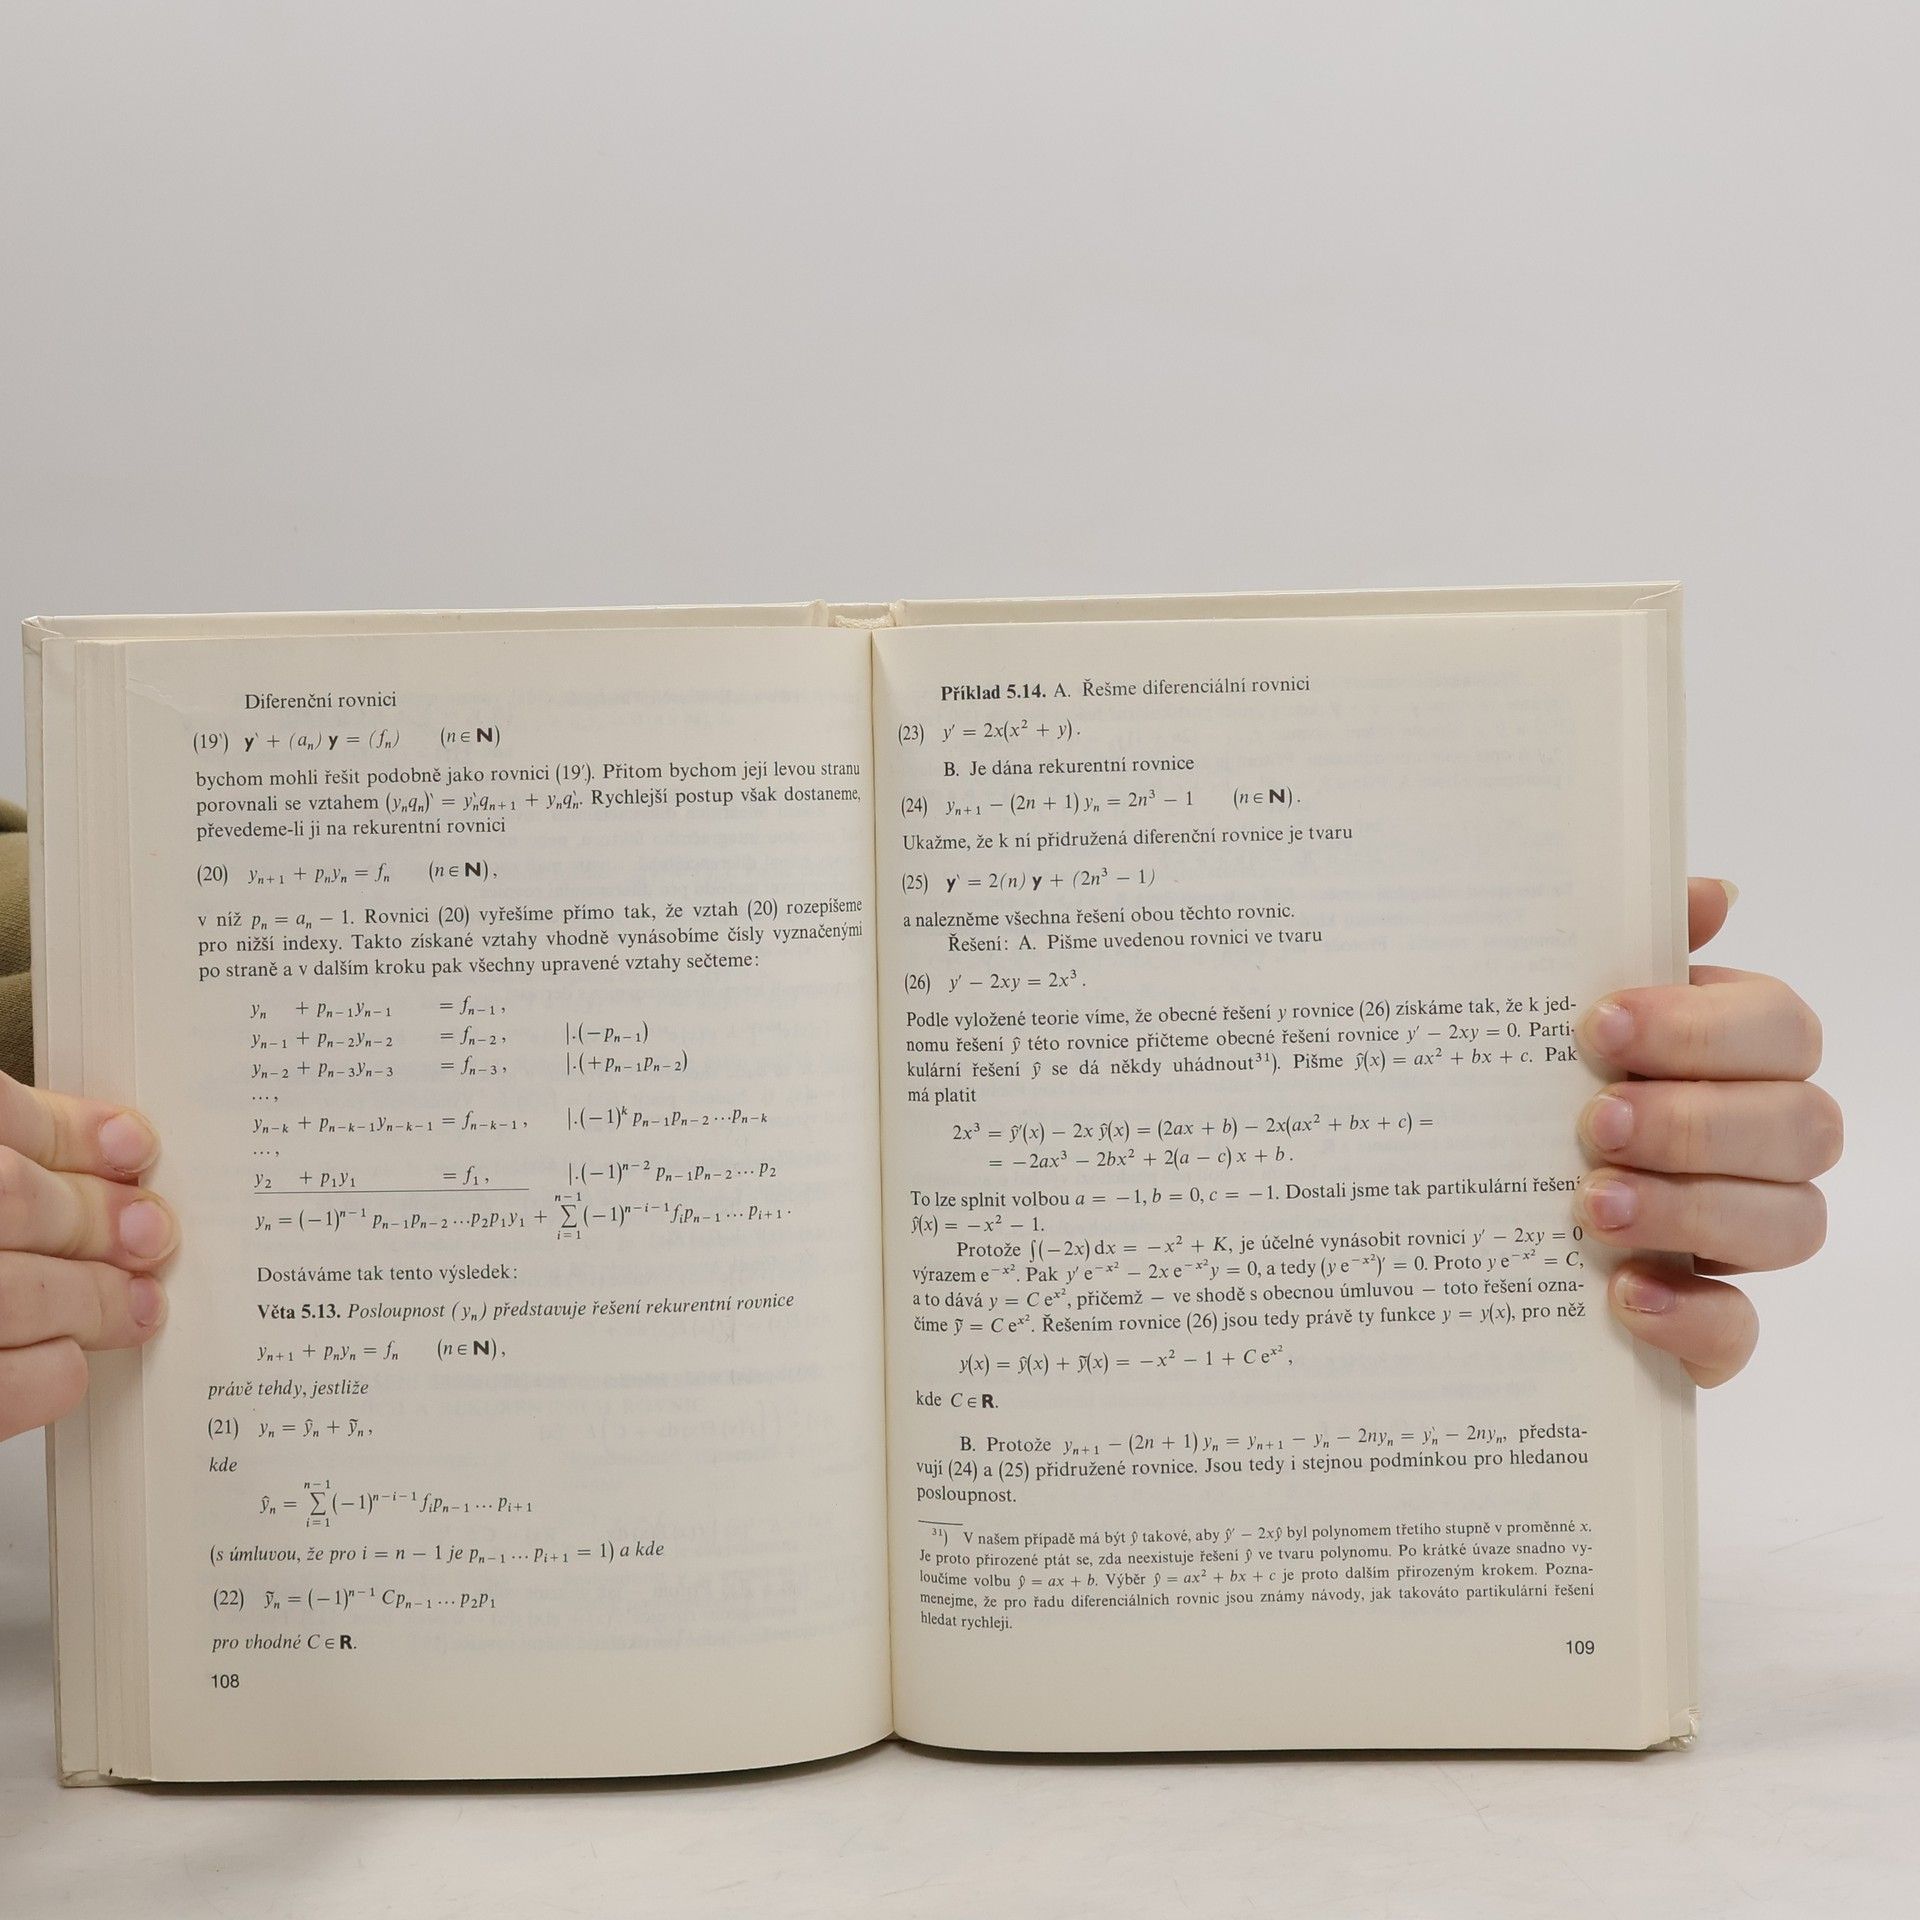 Diferenční rovnici
(19`) y` + (aₙ) y = (fₙ) (n ∈ N)
bychom mohli řešit podobně jako rovnici (19′). Přitom bychom její levou stranu
porovnali se vztahem (yₙqₙ)` = yₙ`qₙ₊₁ + yₙqₙ`. Rychlejší postup však dostaneme,
převedeme-li ji na rekurentní rovnici
(20) yₙ₊₁ + pₙyₙ = fₙ (n ∈ N),
v níž pₙ = aₙ − 1. Rovnici (20) vyřešíme přímo tak, že vztah (20) rozepíšeme
pro nižší indexy. Takto získané vztahy vhodně vynásobíme čísly vyznačenými
po straně a v dalším kroku pak všechny upravené vztahy sečteme:
yₙ + pₙ₋₁yₙ₋₁ = fₙ₋₁,
yₙ₋₁ + pₙ₋₂yₙ₋₂ = fₙ₋₂, |.(−pₙ₋₁)
yₙ₋₂ + pₙ₋₃yₙ₋₃ = fₙ₋₃, |.(+pₙ₋₁pₙ₋₂)
...,
yₙ₋ₖ + pₙ₋ₖ₋₁yₙ₋ₖ₋₁ = fₙ₋ₖ₋₁, |.(−1)ᵏ pₙ₋₁pₙ₋₂...pₙ₋ₖ
...,
y₂ + p₁y₁ = f₁, |.(−1)ⁿ⁻² pₙ₋₁pₙ₋₂...p₂
yₙ = (−1)ⁿ⁻¹ pₙ₋₁pₙ₋₂...p₂p₁y₁ + ∑_{i=1}^{n−1} (−1)ⁿ⁻ⁱ⁻¹fᵢpₙ₋₁...pᵢ₊₁.
Dostáváme tak tento výsledek:
Věta 5.13. Posloupnost (yₙ) představuje řešení rekurentní rovnice
yₙ₊₁ + pₙyₙ = fₙ (n ∈ N),
právě tehdy, jestliže
(21) yₙ = ŷₙ + ỹₙ,
kde
ŷₙ = ∑_{i=1}^{n−1} (−1)ⁿ⁻ⁱ⁻¹ fᵢpₙ₋₁...pᵢ₊₁
(s úmluvou, že pro i = n − 1 je pₙ₋₁...pᵢ₊₁ = 1) a kde
(22) ỹₙ = (−1)ⁿ⁻¹ Cpₙ₋₁...p₂p₁
pro vhodné C ∈ R.
108
Příklad 5.14. A. Řešme diferenciální rovnici
(23) y′ = 2x(x² + y).
B. Je dána rekurentní rovnice
(24) yₙ₊₁ − (2n + 1) yₙ = 2n³ − 1 (n ∈ N).
Ukažme, že k ní přidružená diferenční rovnice je tvaru
(25) y` = 2(n) y + (2n³ − 1)
a nalezněme všechna řešení obou těchto rovnic.
Řešení: A. Pišme uvedenou rovnici ve tvaru
(26) y′ − 2xy = 2x³.
Podle vyložené teorie víme, že obecné řešení y rovnice (26) získáme tak, že k jed-
nomu řešení ŷ této rovnice přičteme obecné řešení rovnice y′ − 2xy = 0. Parti-
kulární řešení ŷ se dá někdy uhádnout³¹). Pišme ŷ(x) = ax² + bx + c. Pak
má platit
2x³ = ŷ′(x) − 2x ŷ(x) = (2ax + b) − 2x(ax² + bx + c) =
= −2ax³ − 2bx² + 2(a − c) x + b.
To lze splnit volbou a = −1, b = 0, c = −1. Dostali jsme tak partikulární řešení
ŷ(x) = −x² − 1.
Protože ∫(−2x) dx = −x² + K, je účelné vynásobit rovnici y′ − 2xy = 0
výrazem e^{−x²}. Pak y′ e^{−x²} − 2x e^{−x²}y = 0, a tedy (y e^{−x²})′ = 0. Proto y e^{−x²} = C,
a to dává y = C e^{x²}, přičemž — ve shodě s obecnou úmluvou — toto řešení ozna-
číme ỹ = C e^{x²}. Řešením rovnice (26) jsou tedy právě ty funkce y = y(x), pro něž
y(x) = ŷ(x) + ỹ(x) = −x² − 1 + C e^{x²},
kde C ∈ R.
B. Protože yₙ₊₁ − (2n + 1) yₙ = yₙ₊₁ − yₙ − 2nyₙ = yₙ` − 2nyₙ, předsta-
vují (24) a (25) přidružené rovnice. Jsou tedy i stejnou podmínkou pro hledanou
posloupnost.
³¹) V našem případě má být ŷ takové, aby ŷ′ − 2xŷ byl polynomem třetího stupně v proměnné x.
Je proto přirozené ptát se, zda neexistuje řešení ŷ ve tvaru polynomu. Po krátké úvaze snadno vy-
loučíme volbu ŷ = ax + b. Výběr ŷ = ax² + bx + c je proto dalším přirozeným krokem. Pozna-
menejme, že pro řadu diferenciálních rovnic jsou známy návody, jak takováto partikulární řešení
hledat rychleji.
109